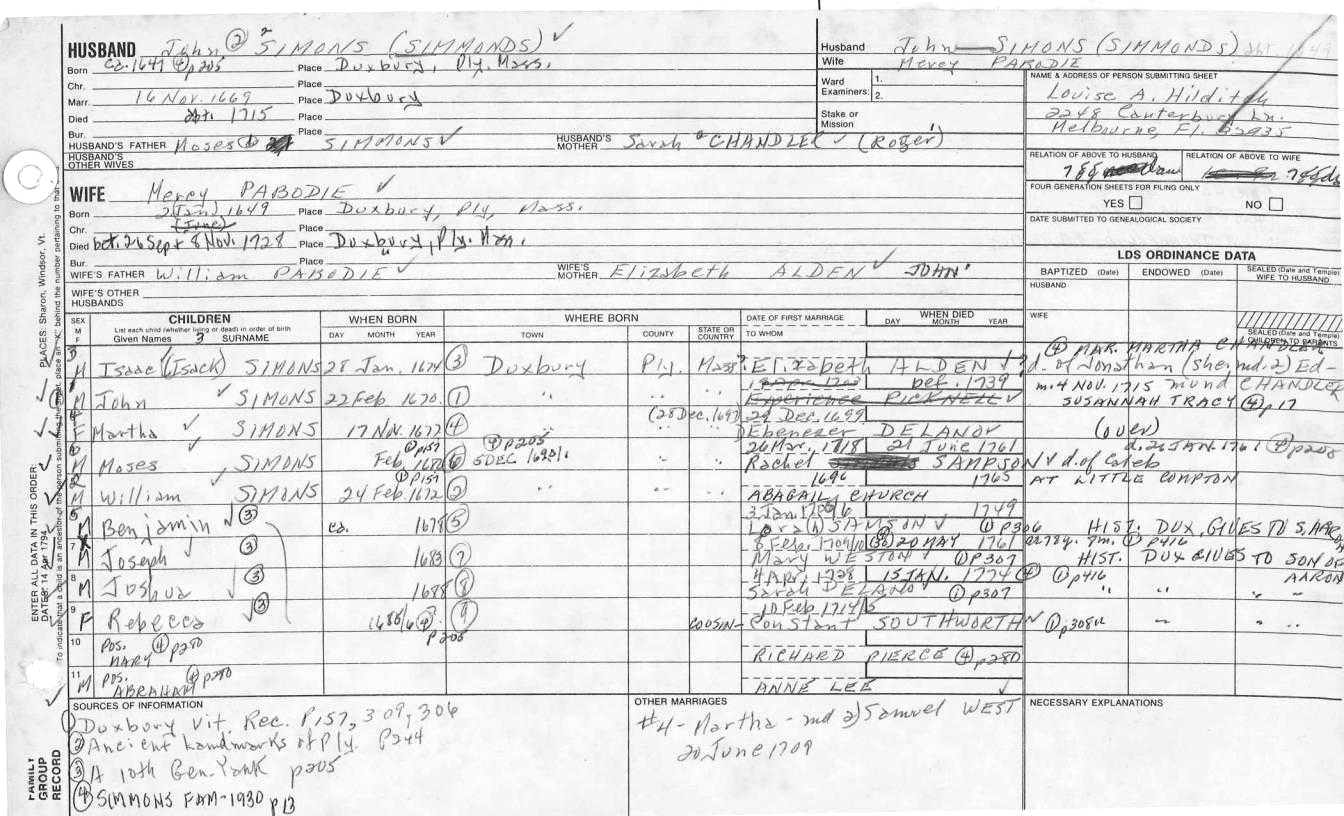 HUSBAND John ② 2 SIMONS (SIMMONDS) ✓
Born ca. 1647 ④ p205 Place Duxbury, Ply. Mass.
Chr. Place
Marr. 16 Nov. 1669 Place Duxbury
Died abt. 1715 Place
Bur. Place
HUSBAND'S FATHER Moses SIMMONS ✓ HUSBAND'S MOTHER Sarah 2 CHANDLER ✓ (Roger 1)
HUSBAND'S OTHER WIVES
WIFE Mercy PABODIE ✓
Born 2 (Jan) 1649 Place Duxbury, Ply, Mass.
Chr. (June) Place
Died bet. 26 Sept & 8 Nov. 1728 Place Duxbury, Ply. Mass.
Bur. Place
WIFE'S FATHER William PABODIE ✓ WIFE'S MOTHER Elizabeth ALDEN ✓ JOHN 1
WIFE'S OTHER HUSBANDS
Husband John SIMONS (SIMMONDS) Abt. 1649
Wife Mercy PABODIE
Ward Examiners: 1.
2.
Stake or Mission
NAME & ADDRESS OF PERSON SUBMITTING SHEET
Louise A. Hilditch
2248 Canterbury Ln.
Melbourne, Fl. 32935
RELATION OF ABOVE TO HUSBAND RELATION OF ABOVE TO WIFE
FOUR GENERATION SHEETS FOR FILING ONLY
YES NO
DATE SUBMITTED TO GENEALOGICAL SOCIETY
LDS ORDINANCE DATA
BAPTIZED (Date) ENDOWED (Date) SEALED (Date and Temple) WIFE TO HUSBAND
HUSBAND
WIFE
SEALED (Date and Temple) CHILDREN TO PARENTS
SEX M F CHILDREN WHEN BORN WHERE BORN DATE OF FIRST MARRIAGE WHEN DIED
List each child (whether living or dead) in order of birth
Given Names 3 SURNAME DAY MONTH YEAR TOWN COUNTY STATE OR COUNTRY TO WHOM DAY MONTH YEAR
3 M Isaac (Isack) SIMONS 28 Jan. 1674 ③ Duxbury Ply. Mass. ? Elizabeth ALDEN ✓ ?
④ MAR. MARTHA CHANDLER
d. of Jonathan (she. md. 2) Ed-
mund CHANDLER
1 M John ✓ SIMONS 22 Feb 1670 ① " " " bef. 1739
Experience PICKNELL ✓
m. 4 NOV. 1715
SUSANNAH TRACY ④ p 17
4 F Martha ✓ SIMONS 17 Nov. 1677 ④ " (28 Dec. 1697) 29 Dec. 1699
Ebenezer DELANO ✓
(over)
6 M Moses ✓ SIMONS Feb. 1680 ① p157 ⑥ ④ p205 5 DEC 1680/1 " " 26 Mar. 1718 21 June 1761
Rachel SAMPSON ✓ d. of Caleb
d. 21 JAN. 1761 ④ p208
2 M William ✓ SIMONS 24 Feb 1672 ① p157 ② " " " 1696 1765
ABAGAIL CHURCH
AT LITTLE COMPTON
5 M Benjamin ✓ ③ ca. 1678 ⑤ 3 Jan 1705/6 1749
Lora (h) SAMSON ✓ ① p306 HIST. DUX. GIVES TO S. AARON
7 M Joseph ③ 1683 ⑦ 8 Feb. 1709/10 20 MAY 1761 ae 78y. 7m. ① p416
Mary WESTON ① p307 HIST. DUX GIVES TO SON OF AARON
8 M Joshua ✓ ③ 1688 ⑧ 4 Apr. 1728 15 JAN. 1774 ④ ① p416
Sarah DELANO ✓ ① p307 " " " "
9 F Rebecca ✓ ③ 1685/6 ④ p205 ⑨ 10 Feb 1714/5
COUSIN - Constant SOUTHWORTH ✓ ① p308 " "
10 POS. MARY ④ p280
RICHARD PIERCE ④ p280
11 M POS. ABRAHAM ④ p280
ANNE LEE ✓
SOURCES OF INFORMATION
① Duxbury Vit. Rec. P157, 309, 306
② Ancient Landmarks of Ply. P244
③ A 10th Gen. Yank p205
④ SIMMONS FAM - 1930 p 13
OTHER MARRIAGES
#4 - Martha - md 2) Samuel WEST
20 June 1709
NECESSARY EXPLANATIONS
FAMILY GROUP RECORD
ENTER ALL DATA IN THIS ORDER:
DATES: 14 Apr 1794 PLACES: Sharon, Windsor, Vt.
To indicate that a child is an ancestor of the person submitting the sheet, place an "X" behind the number pertaining to that